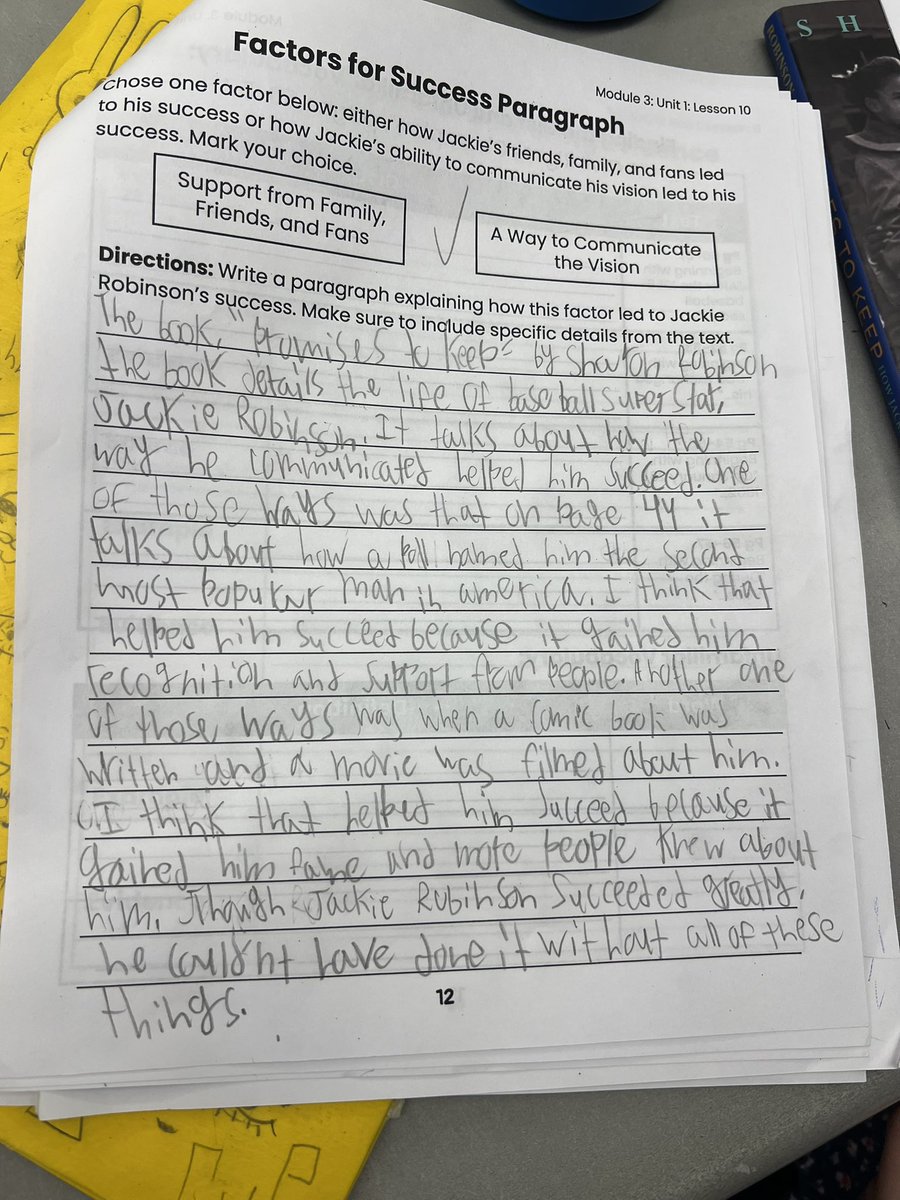 Module 3: Unit 1: Lesson 10
Factors for Success Paragraph
Chose one factor below: either how Jackie's friends, family, and fans led
to his success or how Jackie's ability to communicate his vision led to his
success. Mark your choice.
Support from Family,
Friends, and Fans
A Way to Communicate
the Vision
Directions: Write a paragraph explaining how this factor led to Jackie
Robinson's success. Make sure to include specific details from the text.
The book, "promises to keep" by Sharon Robinson
the book details the life of baseball superstar,
Jackie Robinson. It talks about how the
way he communicated helped him succeed. One
of those ways was that on page 44 it
talks about how a poll named him the second
most popular man in america. I think that
helped him succeed because it gained him
recognition and support from people. Another one
of those ways was when a comic book was
written and a movie was filmed about him.
I think that helped him succeed because it
gained him fame and more people knew about
him. Though Jackie Robinson succeeded greatly,
he couldn't have done it without all of these
things.
12
S H
ROBINSON
S TO KEEP